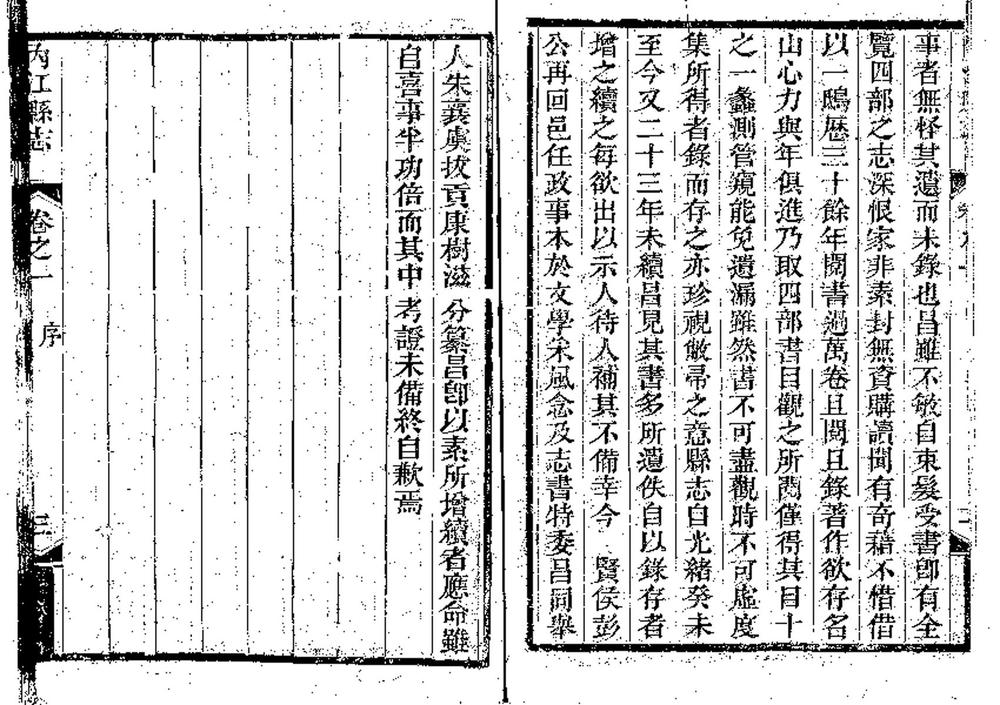 事者無怪其遺而未錄也昌雖不敏自束髮受書卽有全
覽四部之志深恨家非素封無資購讀聞有奇藉不惜借
以一鴟歷三十餘年閱書過萬卷且閱且錄著作欲存名
山心力與年俱進乃取四部書目觀之所閱僅得其目十
之一蠡測管窺能免遺漏雖然書不可盡觀時不可虛度
集所得者錄而存之亦珍視敝帚之意縣志自光緒癸未
至今又二十三年未續昌見其書多所遺佚自以錄存者
增之續之每欲出以示人待人補其不備幸今 賢侯彭
公再回邑任政事本於文學采風念及志書特委昌同舉
人朱襄虞拔貢康樹滋 分纂昌卽以素所增續者應命雖
自喜事半功倍而其中 考證未備終自歉焉
內江縣志
卷之一
序
三